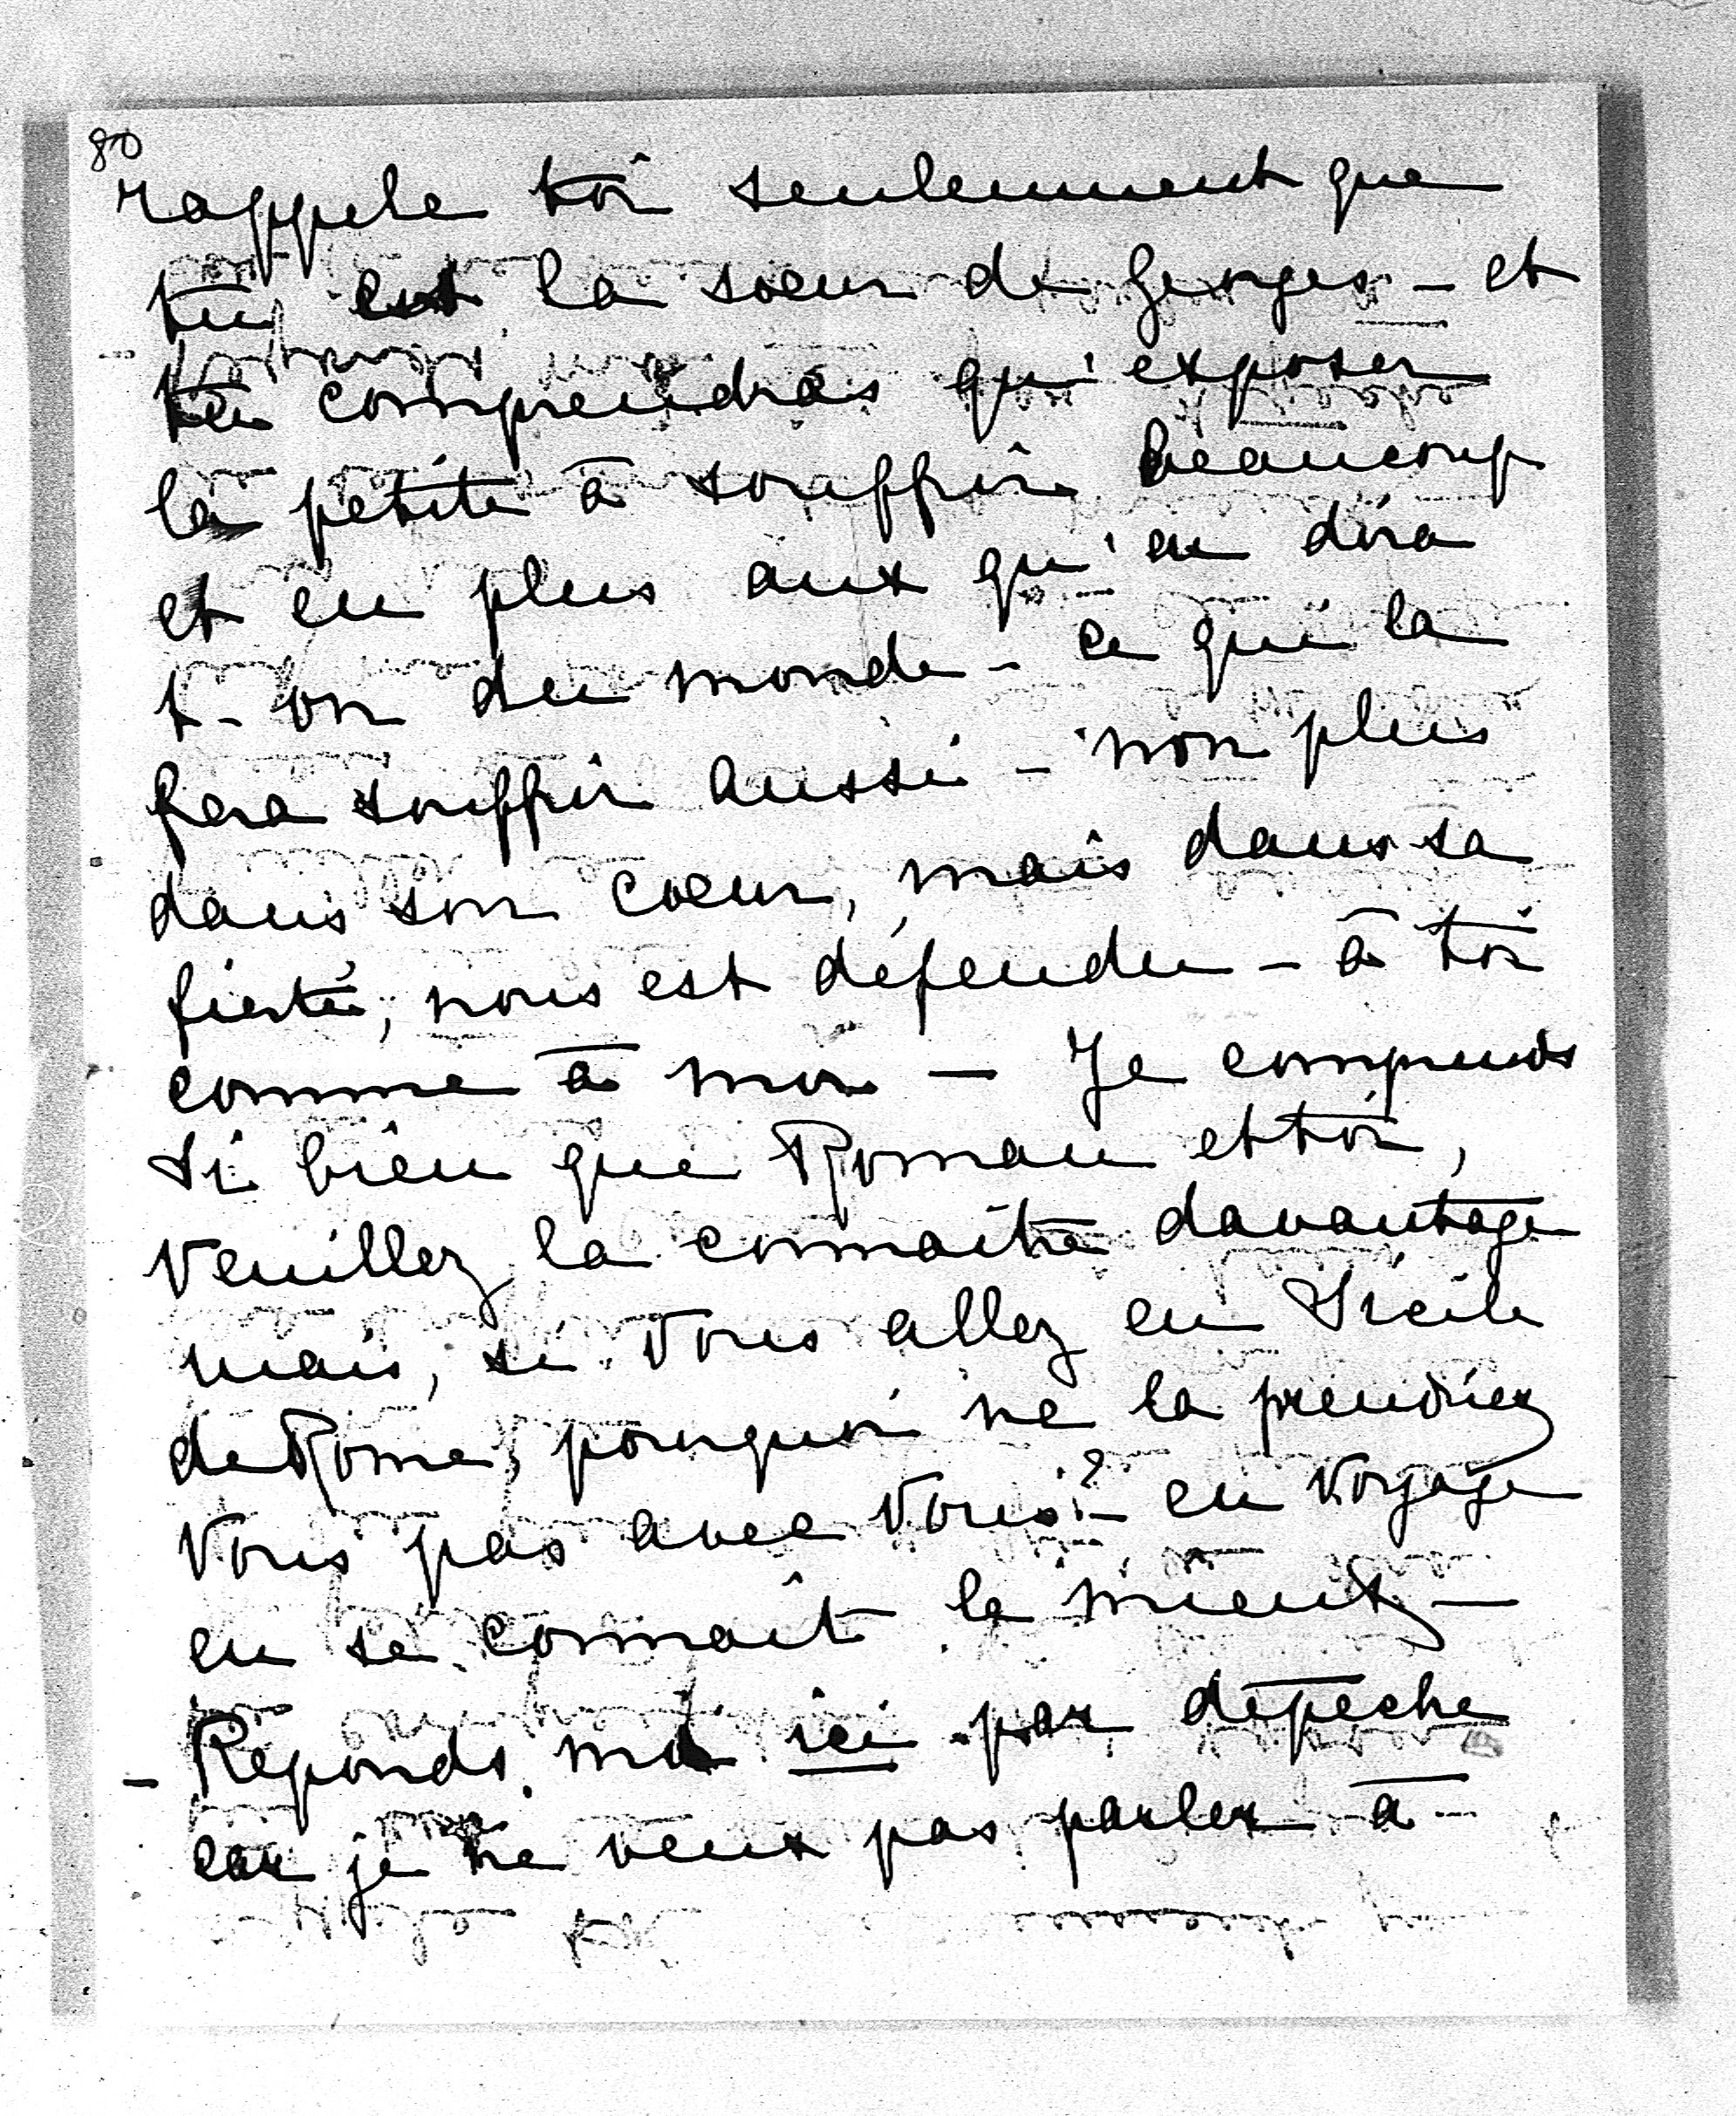 80
rappele toi seulement que
tu est la soeur de Georges - et
tu comprendras qu'exposer
la petite à souffrir beaucoup
et en plus aux qu'en dira
t-on du monde - ce qui la
fera souffrir aussi - non plus
dans son coeur, mais dans sa
fierté, nous est défendu - à toi
comme à moi - Je comprends
si bien que Roman et toi,
veuillez la connaître davantage
mais, si vous allez en Sicile
de Rome, pourquoi ne la prendriez
vous pas avec vous? - en voyage
en se connait le mieux -
- Reponds moi ici par dépeche
car je ne veux pas parler à